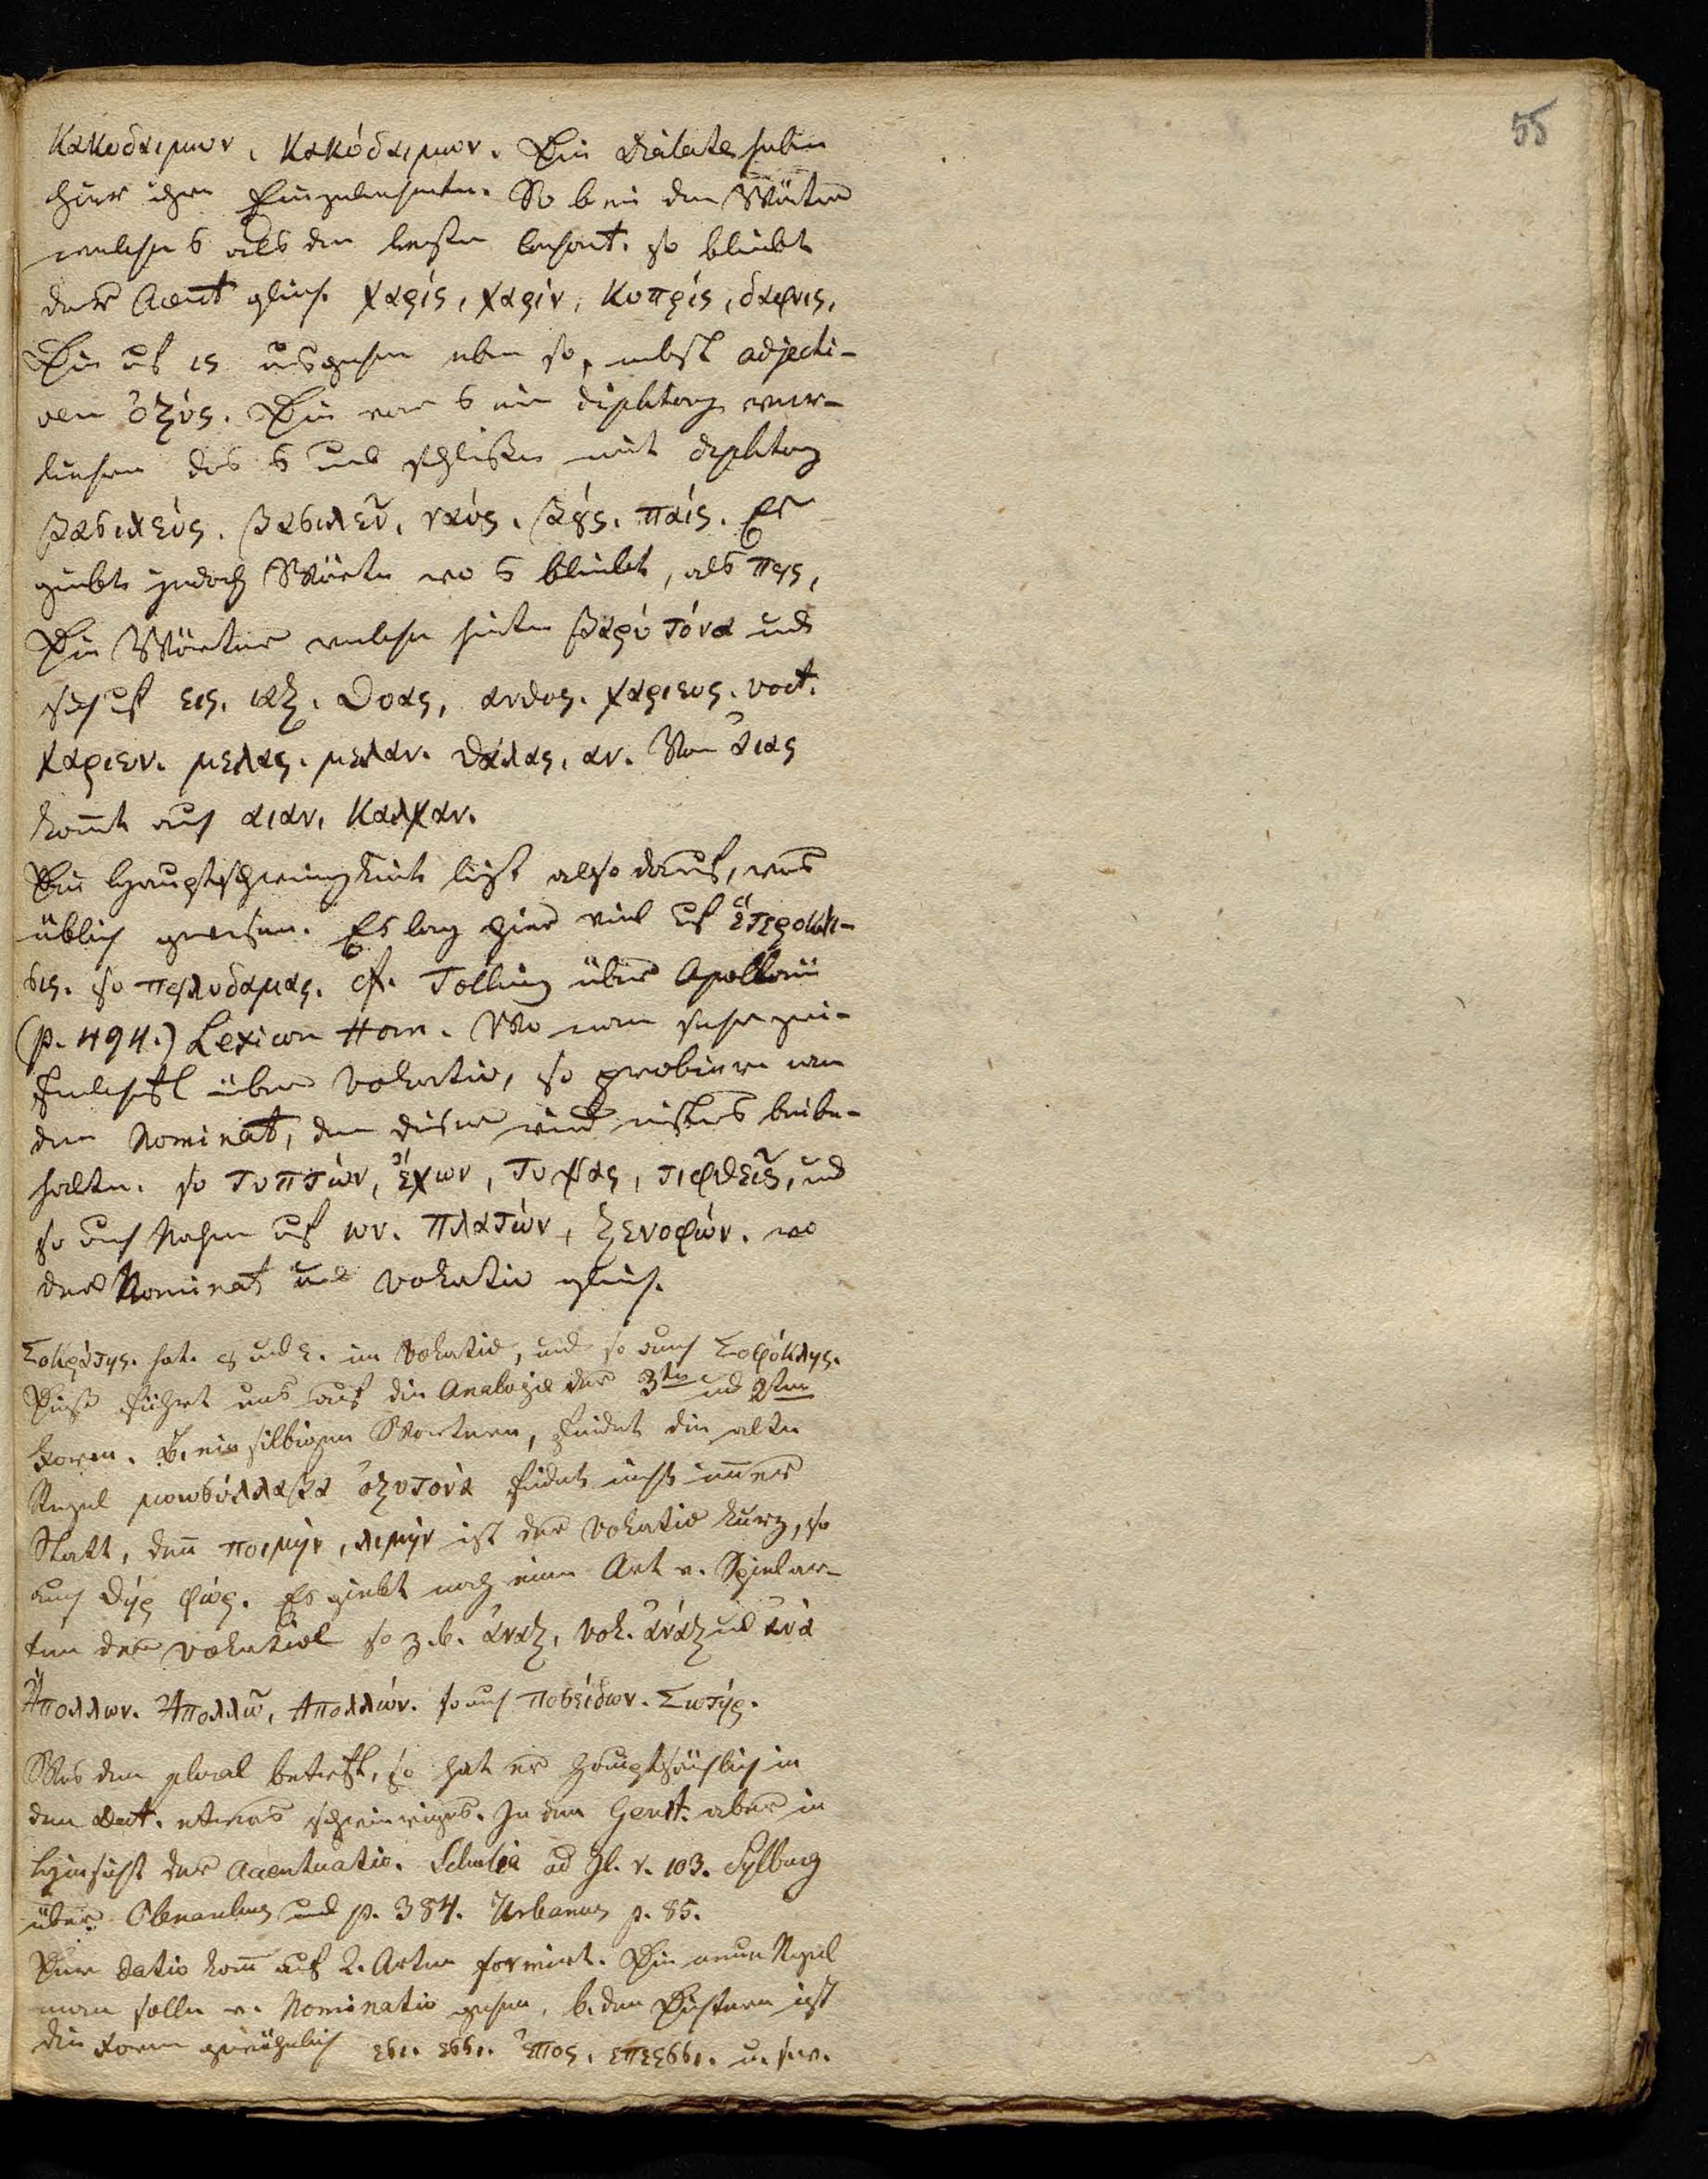 55
κακοδαιμων, κακόδαιμον. Die Dialecte haben
hier ihre Eigenheiten. So bei den Wörtern
welche ς als den letzten Consont. so bleibt
der Accent gleich. χαρίς, χαρίν, κυπρίς, δαφνις,
Die auf ις ausgehen eben so, nebst adjecti-
ven ὀξύς. Die vor ς ein diphtong ver-
liehren das ς und schließen mit diphtong
βασιλεύς. βασιλεῦ, ναύς. βȣ́ς. παίς. Es
giebt jedoch Wörter wo ς bleibt, als πȣς,
Die Wörter welche hinten βαρύτόνα und
sich auf εις. αξ. Θοας, ανθος. χαριεις. voct.
χαριεν. μελας. μελαν. θάλας, αν. Von ἀιας
komt auch αιαν, καλχαν.
Die Hauptschwierigkeit liegt also darauf, was
üblich gewesen. Es lag hier viel auf ἑτεροκλι-
σις. so πολυδαμας. cf. Tolling über Apollonii
(p. 494.) Lexicon Hom. Wo man sehr zwei-
felhaft über Vokativ, so probiere man
den Nominat, denn dieser wird öfters beibe-
halten. so τυπτών, ἔχων, τυψας, τιφθεῖς, und
so auch Nahmen auf ων. Πλατών, Ξενοφών. wo
der Nominat und Vokativ gleich.
Σοκράτης. hat. ης und ε. im Vokativ, und so auch Σοφόκλης.
Dieß führt uns auf die Analogie der 3ten und 2ten
Form. B. einsilbigen Wörtern, findet die alte
Regel μονοσύλλαβα ὀξυτονὰ findet nicht imer
Statt, denn ποιμήν, λιμήν ist der Vokativ kurz, so
auch θήρ φώς. Es giebt noch eine Art v. Spielar-
ten der Vokative so z.b. ἀναξ, Vok. ἀνάξ und ἀνά
Ἀπολλων. Ἀπολλῶ, Απολλών. so auch Ποσείδων. Σωτήρ.
Was den plural betrift, so hat er hauptsächlich in
den Dat. etwas schwieriges. In dem Genit. aber in
Hinsicht der Accentuatio. Scholia ad Il. v. 103. Sylburg
über Clenardus und p. 384. Urbanus p. 85.
Der Dativ kom auf 2. Arten formirt. Die neue Regel
man solle v. Nominativ gehen, b. den Dichtern ist
die Form gewöhnlich εσι. εσσι. ἐπος, επεεσσι. u. s. w.